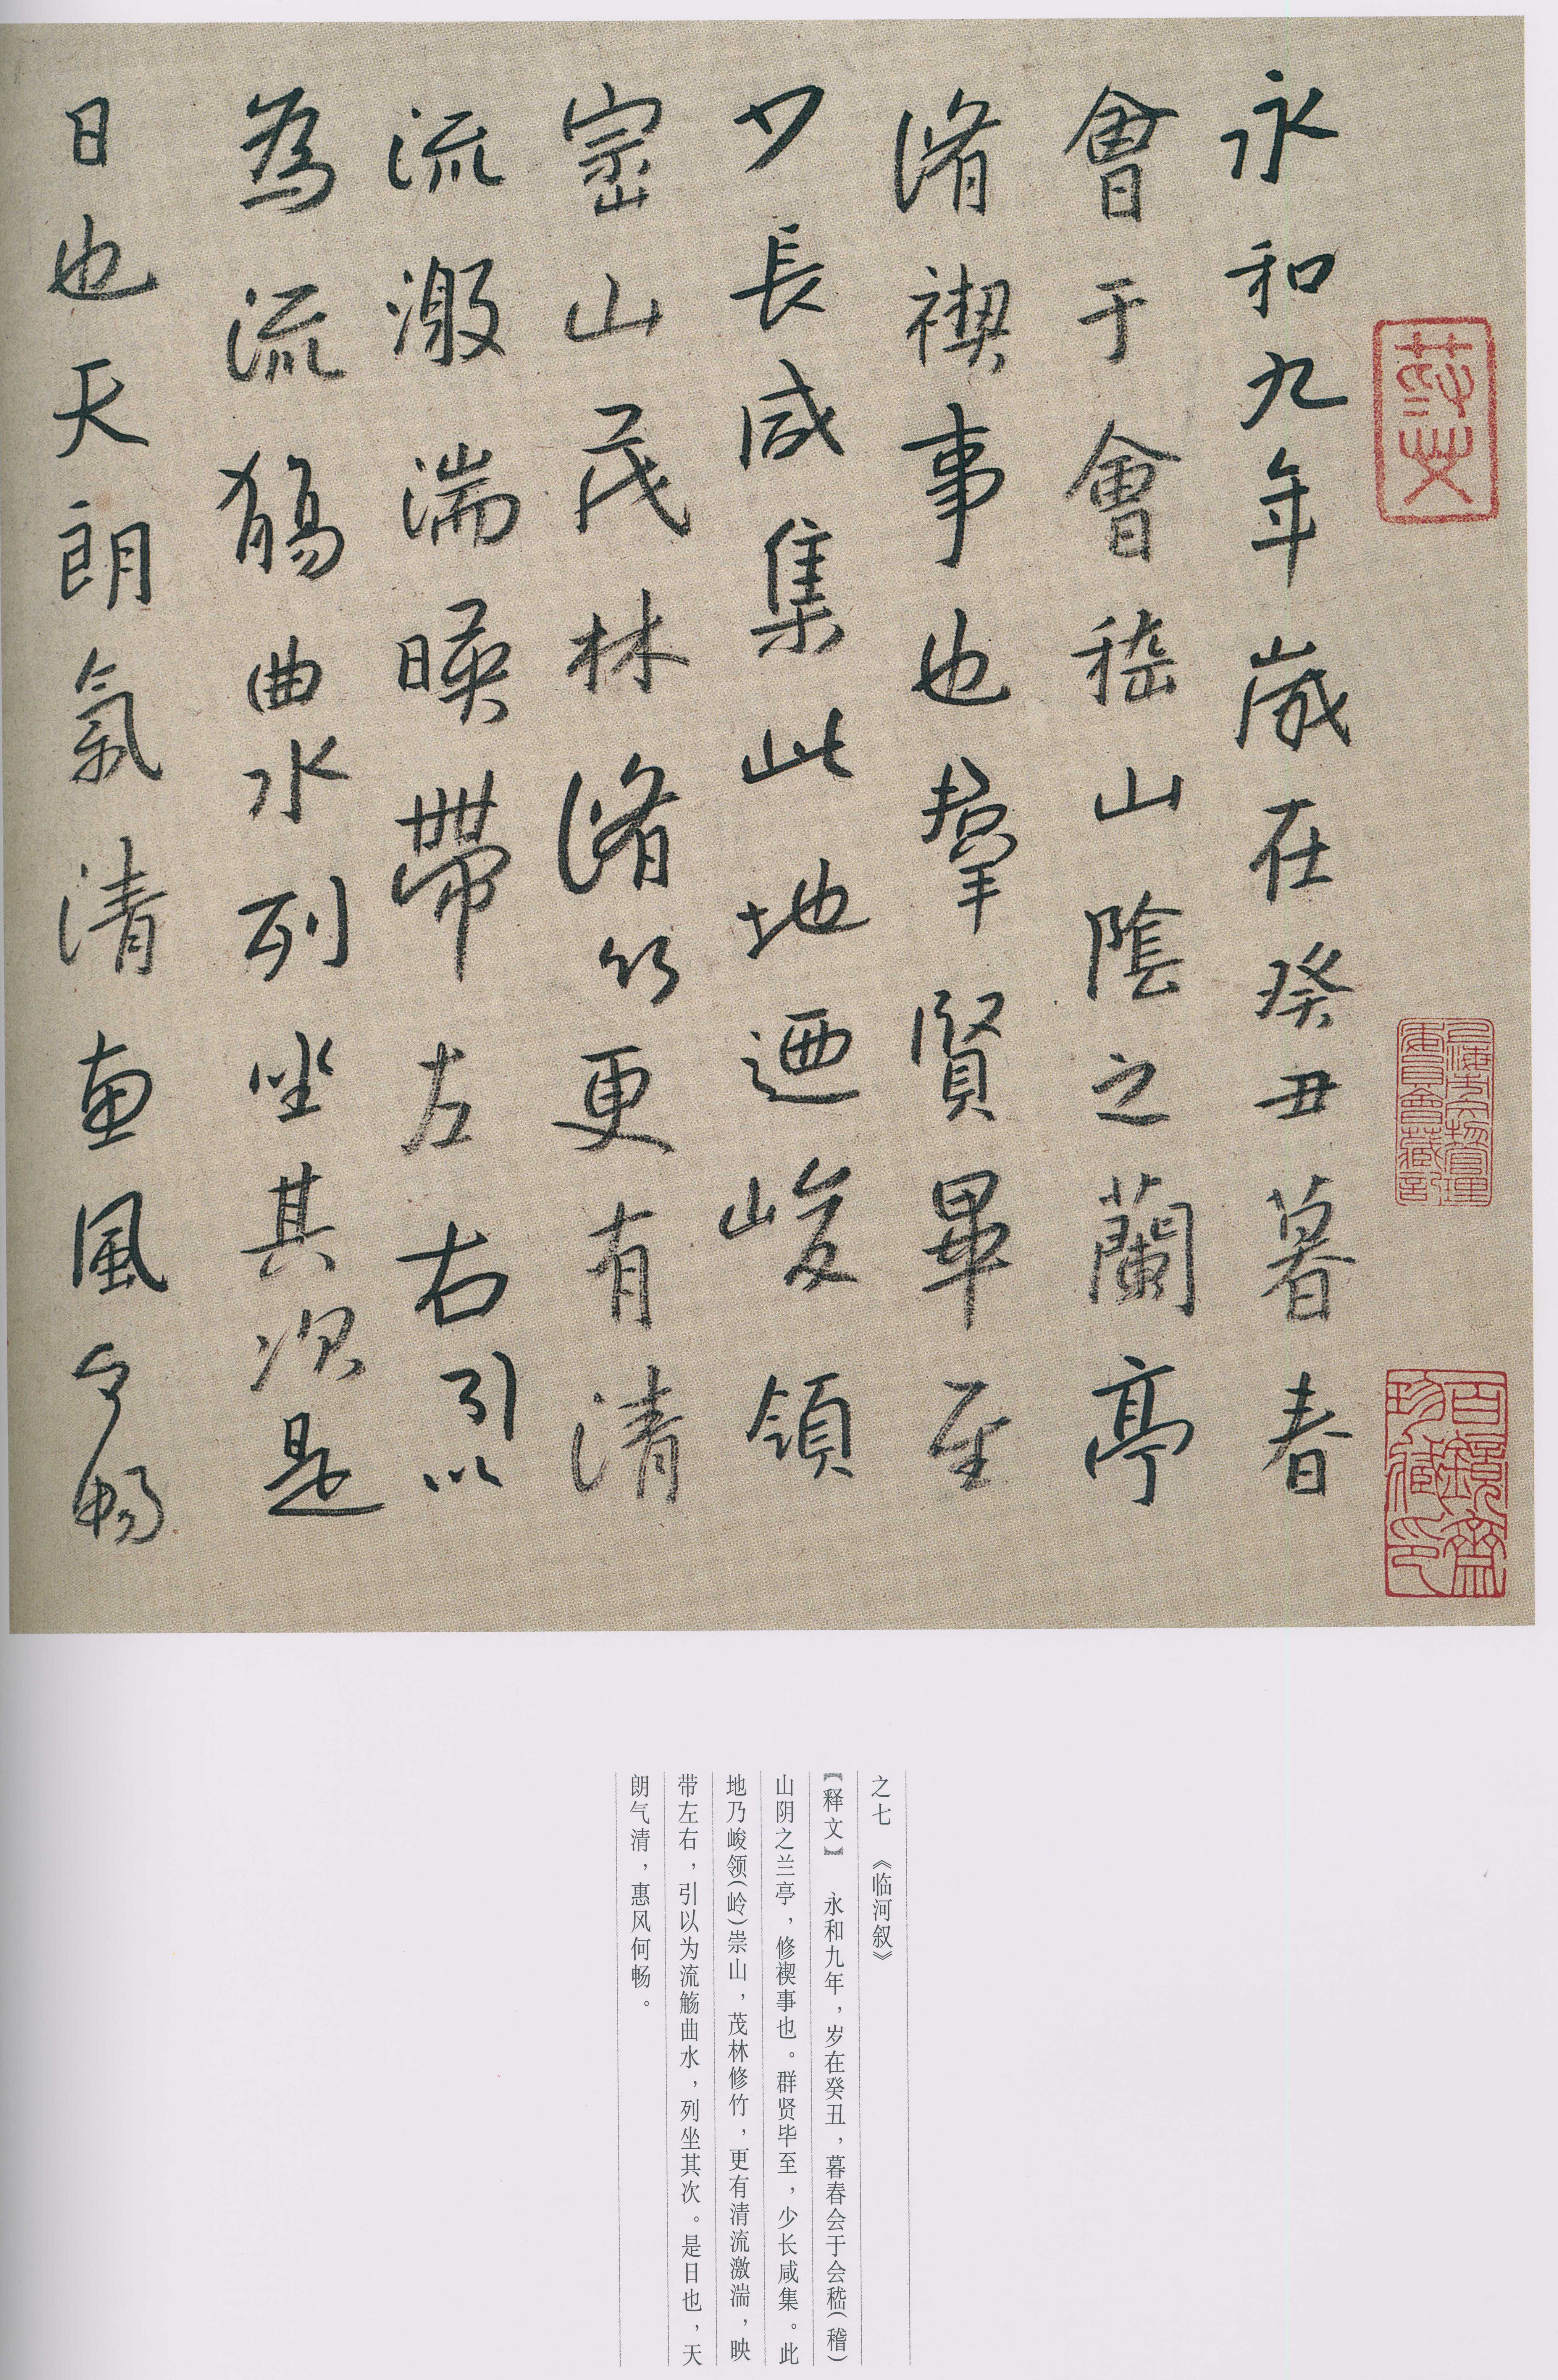 永和九年歲在癸丑暮春
會于會嵇山陰之蘭亭
脩禊事也羣賢畢至
少長咸集此地迺峻領
崇山茂林脩竹更有清
流激湍暎帶左右引以
為流觴曲水列坐其次是
日也天朗氣清惠風何暢
上海市文物管理
委員會藏記
百鏡齋
珍藏印
之七　《临河叙》
【释文】　永和九年，岁在癸丑，暮春会于会嵇(稽)
山阴之兰亭，修禊事也。群贤毕至，少长咸集。此
地乃峻领(岭)崇山，茂林修竹，更有清流激湍，映
带左右，引以为流觞曲水，列坐其次。是日也，天
朗气清，惠风何畅。